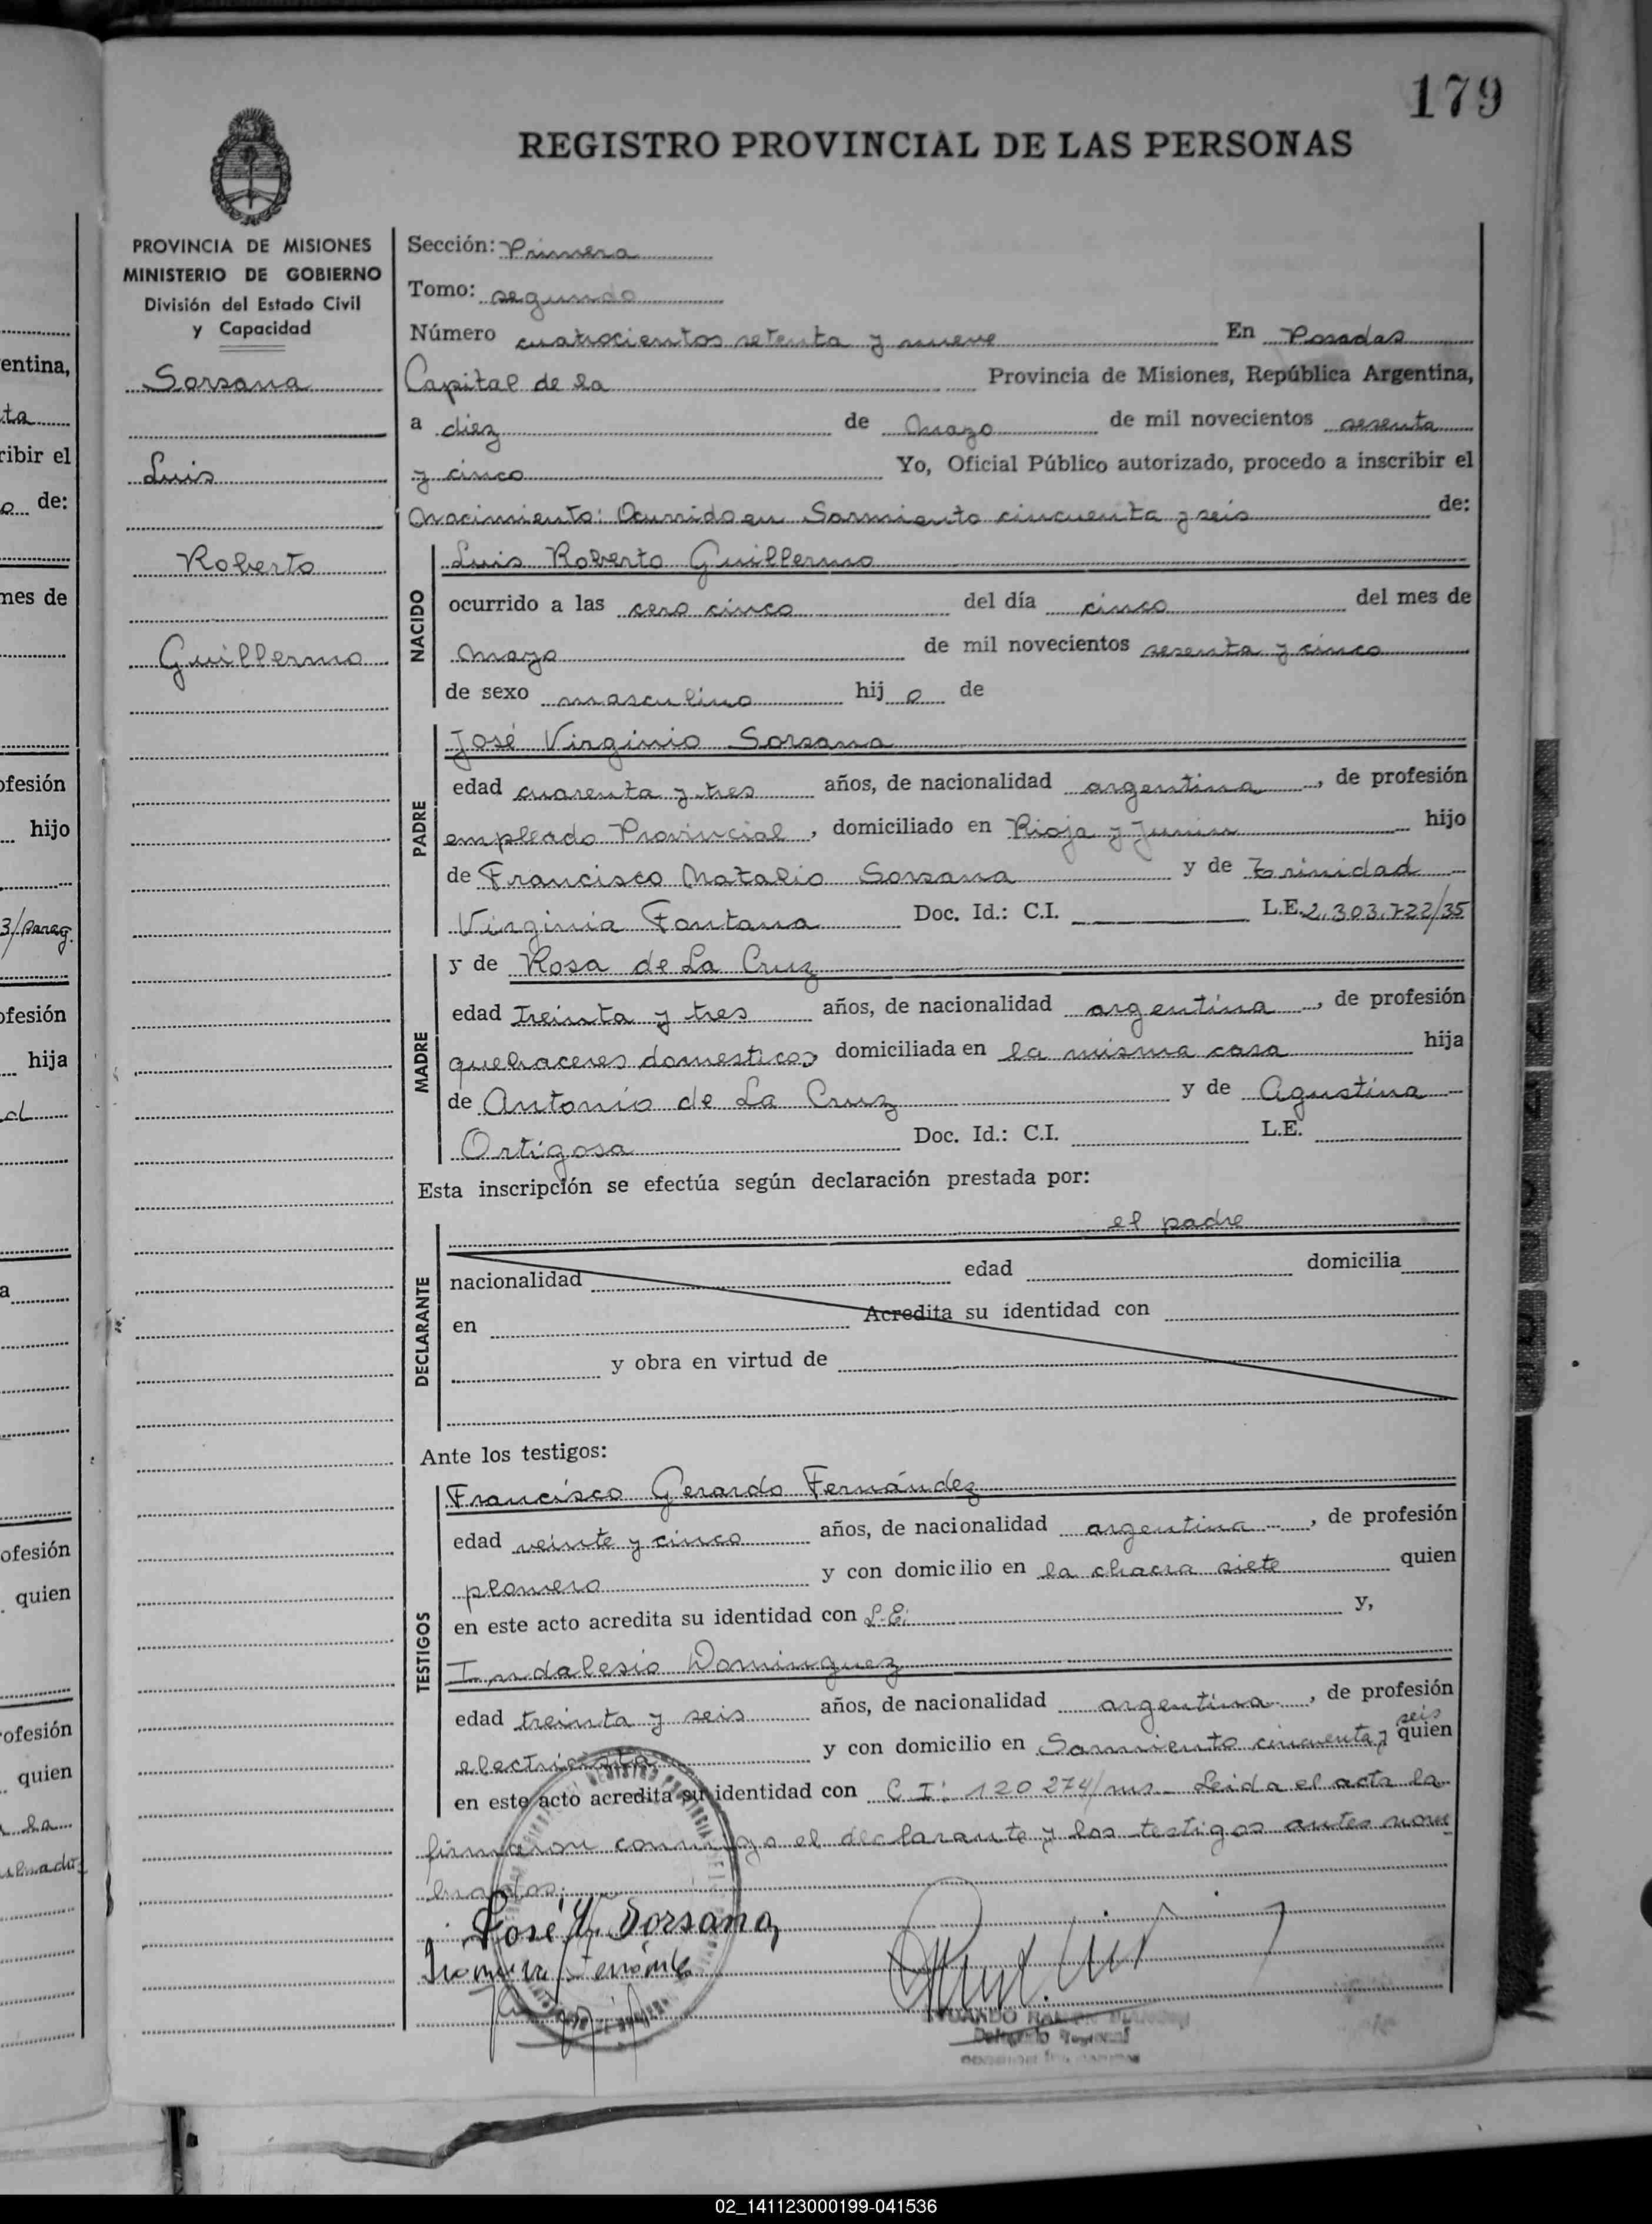 179
REGISTRO PROVINCIAL DE LAS PERSONAS
PROVINCIA DE MISIONES
MINISTERIO DE GOBIERNO
División del Estado Civil
y Capacidad
Sorsana
Luis
Roberto
Guillermo
Sección: Primera
Tomo: segundo
Número cuatrocientos setenta y nueve En Posadas
Capital de la Provincia de Misiones, República Argentina,
a diez de Mayo de mil novecientos sesenta
y cinco Yo, Oficial Público autorizado, procedo a inscribir el
Nacimiento: Ocurrido en Sarmiento cincuenta y seis de:
NACIDO
Luis Roberto Guillermo
ocurrido a las cero cinco del día cinco del mes de
Mayo de mil novecientos sesenta y cinco
de sexo masculino hijo de
PADRE
José Virginio Sorsana
edad cuarenta y tres años, de nacionalidad argentina, de profesión
empleado Provincial, domiciliado en Rioja y Junin hijo
de Francisco Natalio Sorsana y de Trinidad
Virginia Fontana Doc. Id.: C.I. L.E. 2.303.722/35
MADRE
y de Rosa de La Cruz
edad Treinta y tres años, de nacionalidad argentina, de profesión
quehaceres domesticos, domiciliada en la misma casa hija
de Antonio de La Cruz y de Agustina
Ortigosa Doc. Id.: C.I. L.E.
Esta inscripción se efectúa según declaración prestada por:
DECLARANTE
el padre
nacionalidad edad domicilia
en Acredita su identidad con
y obra en virtud de
Ante los testigos:
TESTIGOS
Francisco Gerardo Fernández
edad veinte y cinco años, de nacionalidad argentina, de profesión
plomero y con domicilio en la chacra siete quien
en este acto acredita su identidad con L.E. y,
Indalesio Dominguez
edad treinta y seis años, de nacionalidad argentina, de profesión
electricista y con domicilio en Sarmiento cincuenta y seis quien
en este acto acredita su identidad con C I: 120274/mis. Leida el acta la
firmaron conmigo el declarante y los testigos antes nom
brados.
José V. Sorsana
02_141123000199-041536